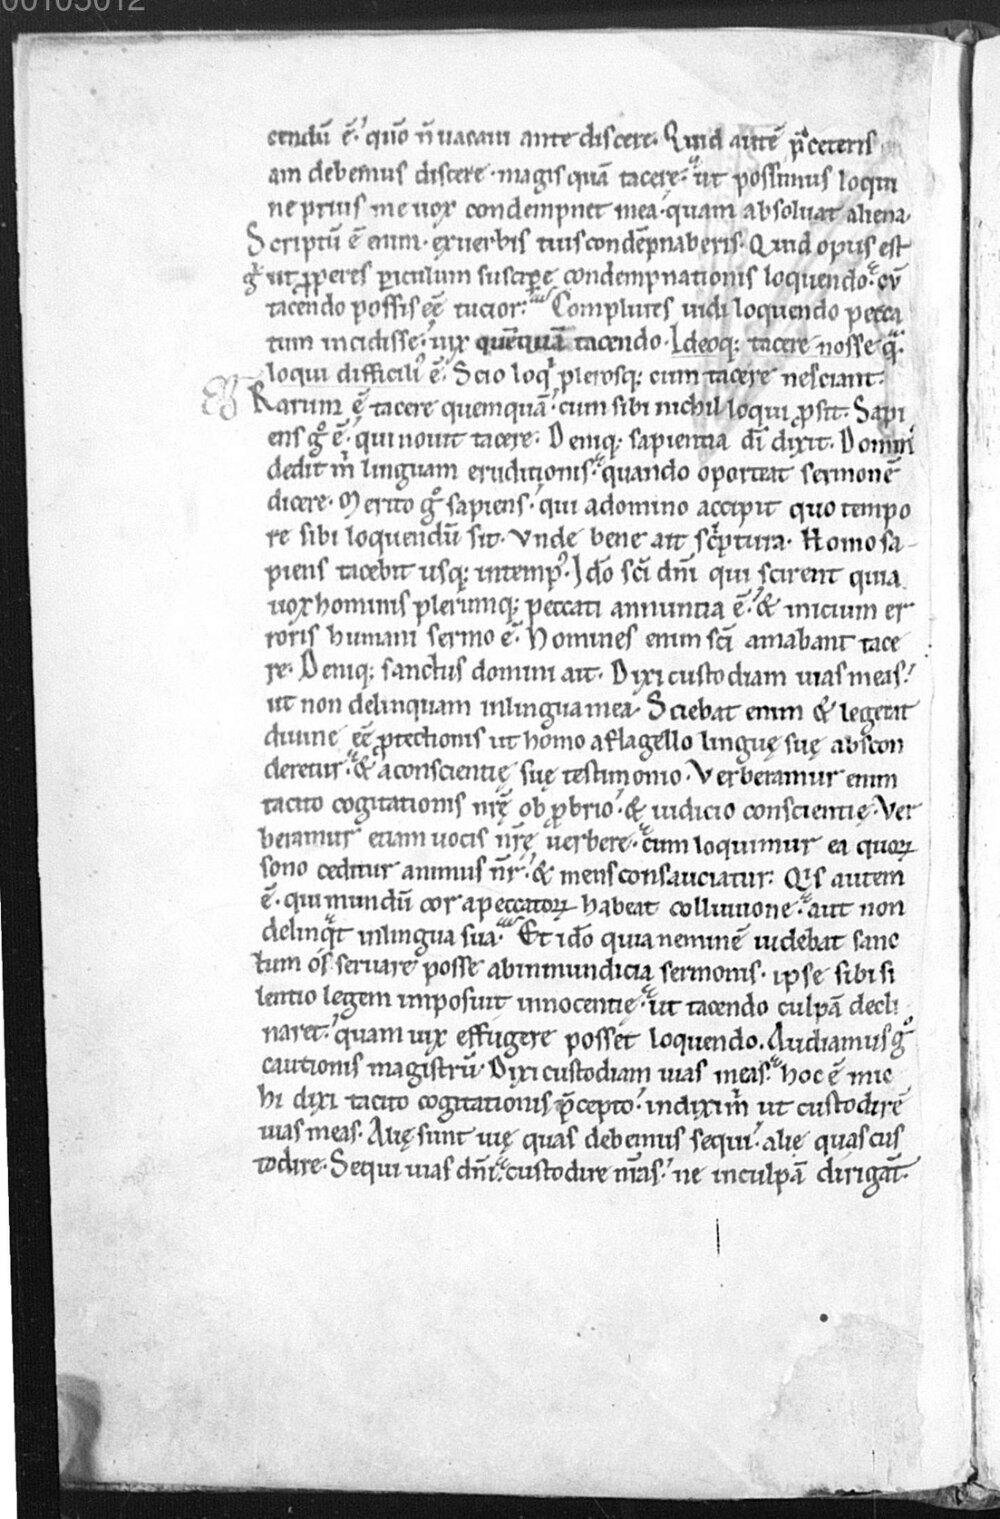 00105012
cendū ē. quō n̄ uacaui ante discere. Quid autē p̄ceteris
am debemus discere. magis quā tacere. ut possimus loqui
ne prius me uox condempnet mea. quam absoluat aliena.
Scriptū ē enim. ex uerbis tuis condēpnaberis. Quid opus est
gͥ ut ꝓperes ꝑiculum suscipe᷒ condempnationis loquendo. cū
tacendo possis eē tucior. Complures uidi loquendo pecca
tum incidisse. uix quēquā tacendo. Ideoq; tacere nosse qͣ.
loqui difficiliꝰ ē. Scio loqͥ plerosq; cum tacere nesciant.
Rarum ē tacere quemquā. cum sibi nichil loqui ꝓsit. Sapi
ens gͦ ē. qui nouit tacere. Deniq; sapientia dī dixit. Dominꝰ
dedit m̄ linguam eruditionis. quando oporteat sermonē
dicere. Merito gͦ sapiens. qui a domino accipit quo tempo
re sibi loquendū sit. Vnde bene ait sc̄ptura. Homo sa-
piens tacebit usq; in tempꝰ. Ido̅ sc̄i dn̄i qui scirent quia
uox hominis plerumq; peccati annuntia ē. & inicium er
roris humani sermo ē. Homines enim sc̄i amabant tace
re. Deniq; sanctus domini ait. Dixi custodiam uias meas.
ut non delinquam in lingua mea. Sciebat enim & legerat
diuine eē ꝓtectionis ut homo a flagello linguę suę abscon
deretur. & a conscientię suę testimonio. Verberamur enim
tacito cogitationis nr̄ę obꝓbrio. & iudicio conscientię. Ver
beramur etiam uocis nr̄ę verbere. cum loquimur ea quoꝝ
sono ceditur animus nr̄. & mens consauciatur. Qͥs autem
ē. qui mundū cor a peccatoꝝ habeat colluuione. aut non
delinqͣt in lingua sua. Et ido̅ quia neminē uidebat sanc
tum os seruare posse ab inmundicia sermonis. ipse sibi si
lentio legem imposuit innocentię. ut tacendo culpā decli
naret. quam uix effugere posset loquendo. Audiamus gͦ
cautionis magistrū. Dixi custodiam uias meas. hoc ē mic
hi dixi tacito cogitationis p̄cepto. indixim̄ ut custodirē
uias meas. Alię sunt uię quas debemus sequi. alię quas cus
todire. Sequi uias dn̄i. custodire n̄ras. ne in culpā dirigāt.